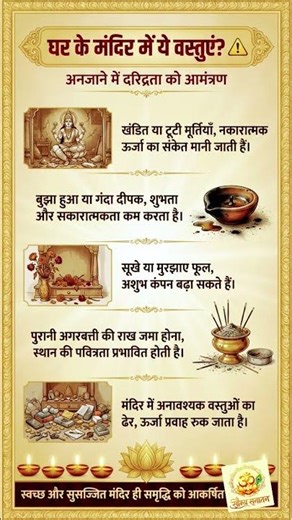 घर के मंदिर में ये वस्तुएं?
अनजाने में दरिद्रता को आमंत्रण
खंडित या टूटी मूर्तियाँ, नकारात्मक
ऊर्जा का संकेत मानी जाती हैं।
बुझा हुआ या गंदा दीपक, शुभता
और सकारात्मकता कम करता है।
सूखे या मुरझाए फूल,
अशुभ कंपन बढ़ा सकते हैं।
पुरानी अगरबत्ती की राख जमा होना,
स्थान की पवित्रता प्रभावित होती है।
मंदिर में अनावश्यक वस्तुओं का
ढेर, ऊर्जा प्रवाह रुक जाता है।
स्वच्छ और सुसज्जित मंदिर ही समृद्धि को आकर्षित
ॐ